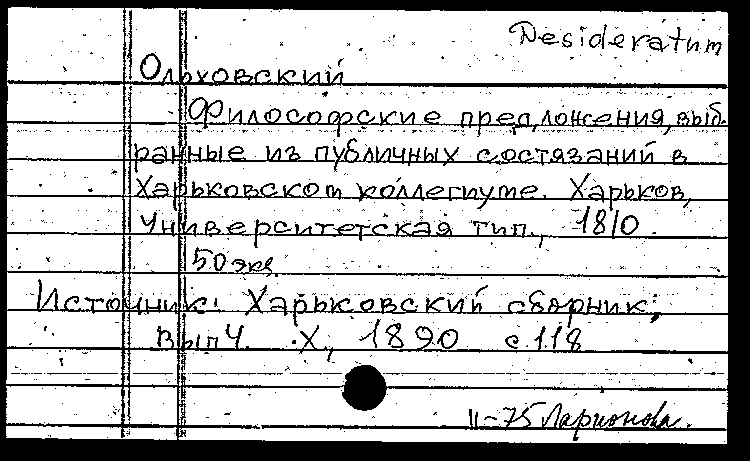 Desideratum
Ольховский
Философские предложения, выб-
ранные из публичных состязаний в
Харьковском коллегиуме. Харьков,
Университетская тип., 1810.
50 экз.
Источник: Харьковский сборник,
Вып. X, 1890 с 118
II-75 Ларионова.